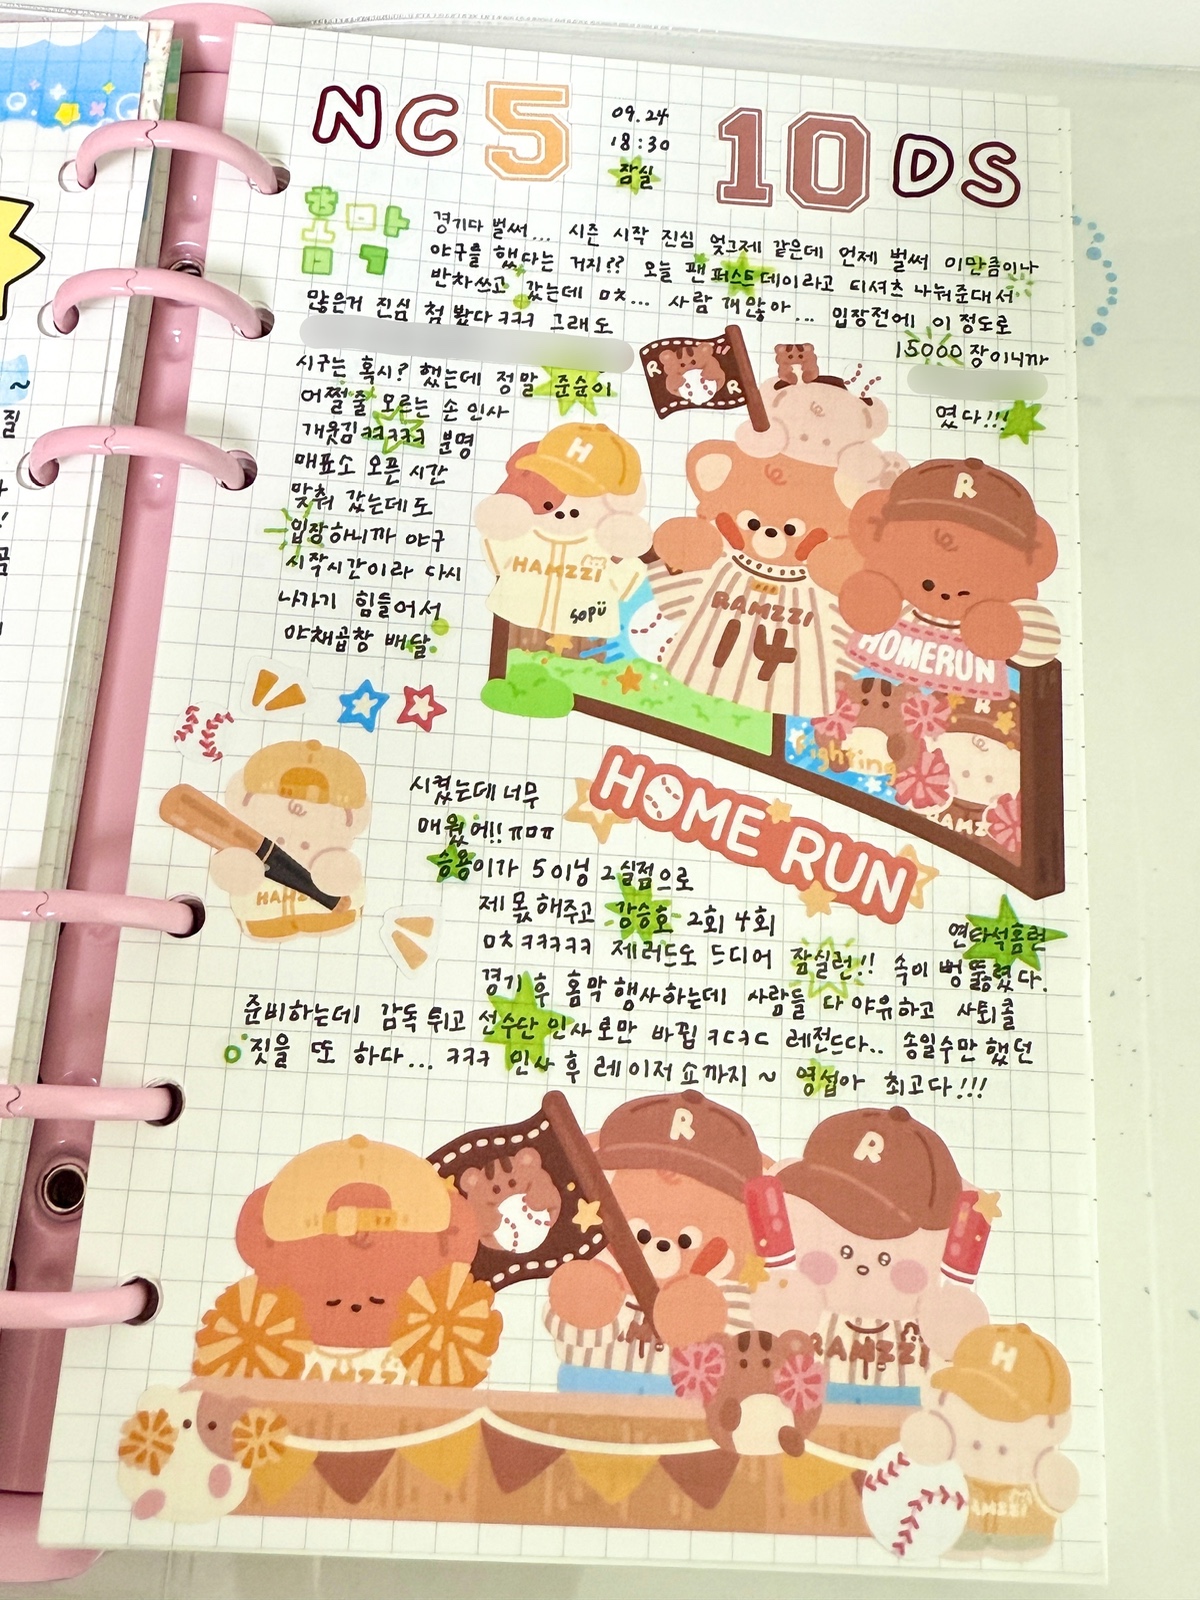 NC 5 09.24 10 DS
18:30
잠실
홈 마
막
경기다 벌써... 시즌 시작 진심 엊그제 같은데 언제 벌써 이만큼이나
야구를 했다는 거지?? 오늘 팬퍼스트데이라고 티셔츠 나눠준대서
반차쓰고 갔는데 미친... 사람 개많아... 입장전에 이 정도로
많은거 진심 첨 봤다ㅋㅋㅋ 그래도
15000장이니까
시구는 혹시? 했는데 정말 준순이
였다!!!
어쩔줄 모르는 손 인사
개웃김ㅋㅋㅋㅋㅋ 분명
매표소 오픈 시간
맞춰 갔는데도
입장하니까 야구
시작시간이라 다시
나가기 힘들어서
야채곱창 배달
시켰는데 너무
매웠어!! ㅠㅁㅠ
승용이가 5이닝 2실점으로
제 몫 해주고 강승호 2회 4회
연타석홈런
미친ㅋㅋㅋㅋㅋ 제러드도 드디어 잠실런!! 속이 뻥 뚫렸다.
경기 후 홈막 행사하는데 사람들 다 야유하고 사퇴콜
준비하는데 감독 튀고 선수단 인사로만 바뀜 ㅋㄷㅋㄷ 레전드다.. 송일수만 했던
짓을 또 하다... ㅋㅋㅋ 인사 후 레이저 쇼까지 ~ 영섭아 최고다!!!
R
R
H
R
HAMZZI
sopü
RAMZZI
14
HOMERUN
R
Fighting
RAMZ
HOME RUN
HAMZ
R
R
RAMZZI
AMZZI
H
AMZZI
~
질